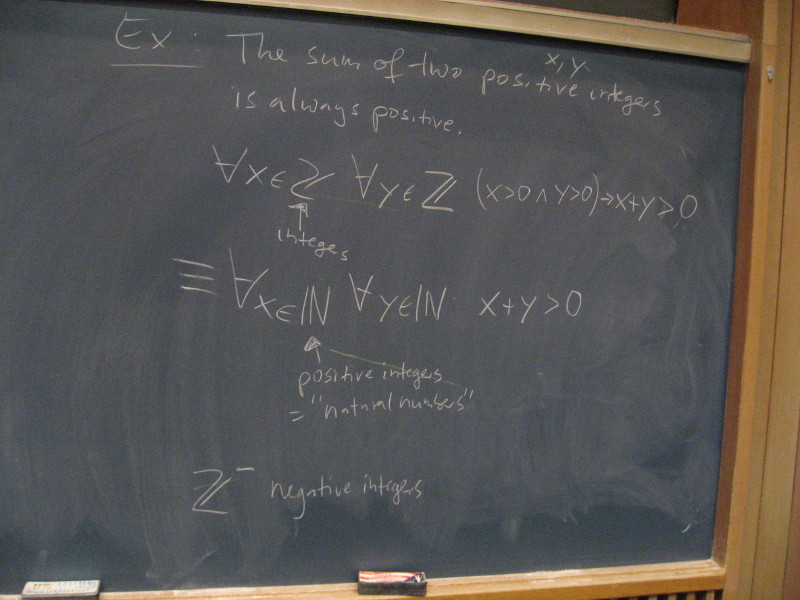 x, y
Ex: The sum of two positive integers
is always positive.
∀x∈ℤ ∀y∈ℤ (x>0 ∧ y>0)→x+y>0
integers
≡ ∀x∈ℕ ∀y∈ℕ x+y>0
positive integers
= "natural numbers"
ℤ⁻ negative integers